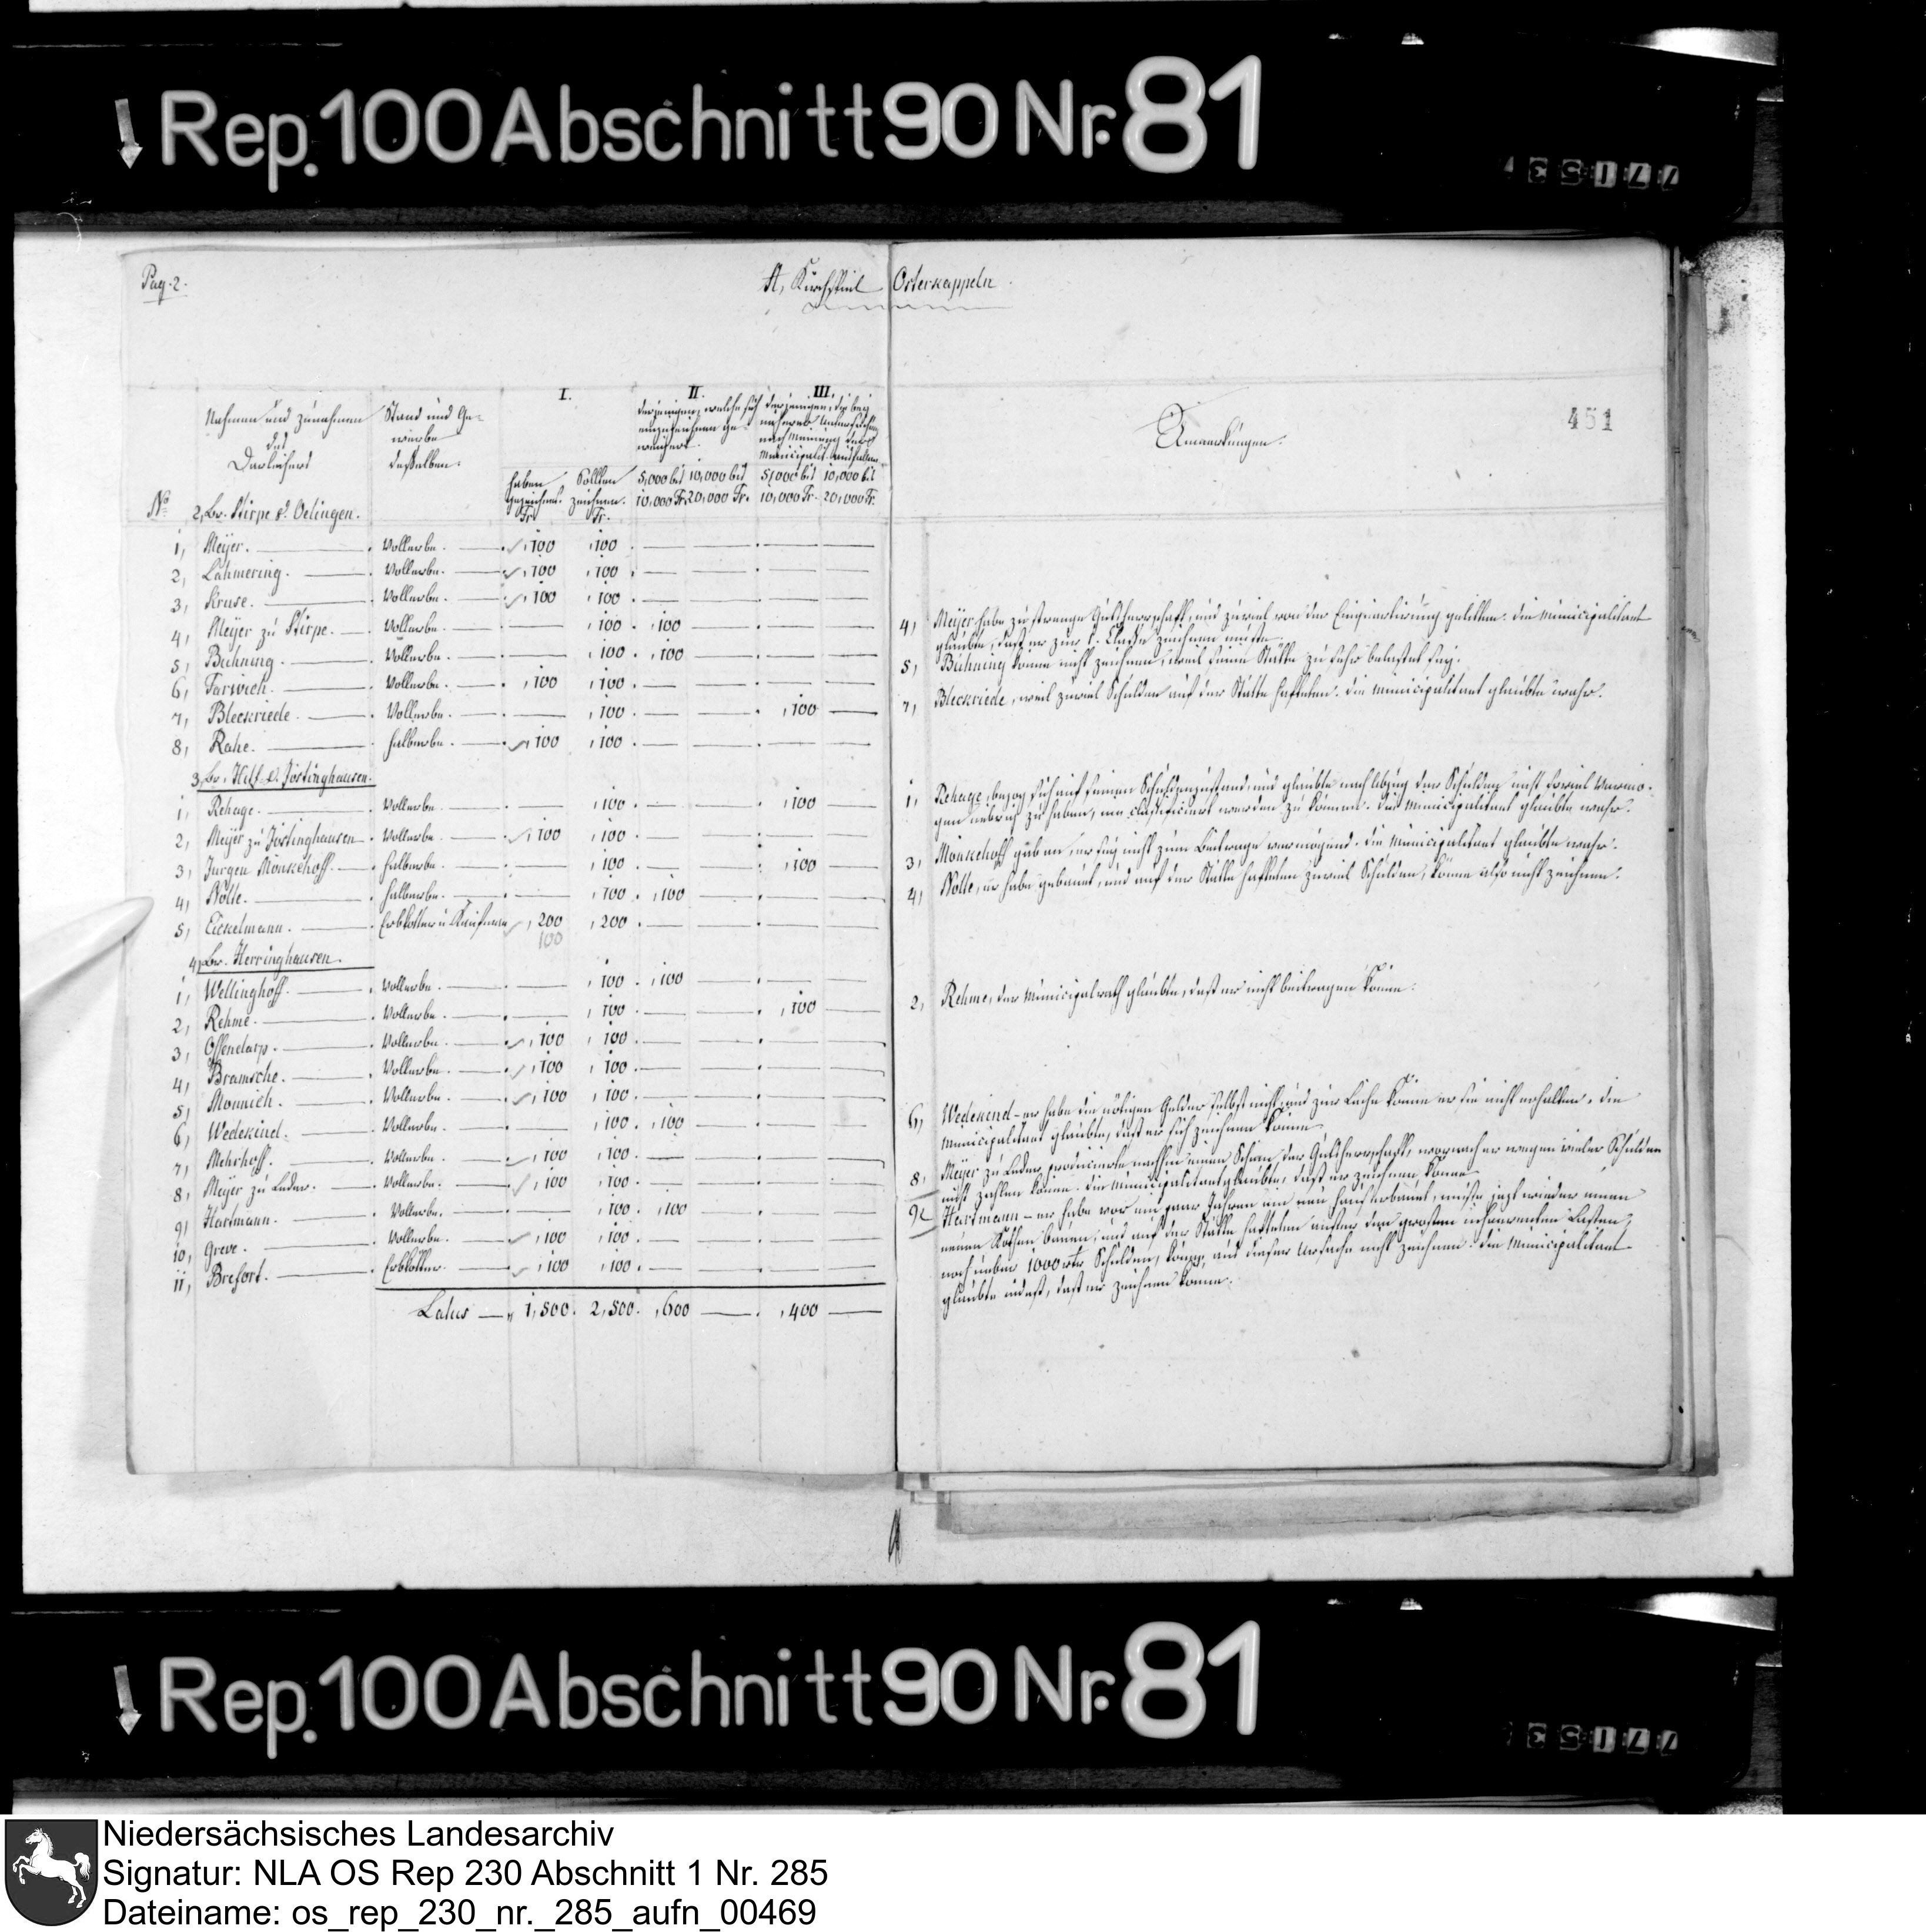 Rep. 100 Abschnitt 90 Nr. 81
Pag. 2.
A, Kirchspiel Osterkappeln.
451
I. II. III.
Nahmen und Zunahmen des Darleihers
Stand und Gewerbe desselben.
haben gezeichnet. Fr.
Sollten zeichnen. Fr.
derjenigen, welche sich einzuzeichnen geweigert.
5,000 bis 10,000 Fr.
10,000 bis 20,000 Fr.
derjenigen, die bey näherer Untersuchung nach Meinung der Municipalit. ausfallen.
5,000 bis 10,000 Fr.
10,000 bis 20,000 Fr.
Anmerkungen.
No. 2, Br. Stirpe & Oelingen.
1, Meyer. Vollerbe. 100 100
2, Lahmering. Vollerbe. 100 100
3, Kruse. Vollerbe. 100 100
4, Meyer zu Stirpe. Vollerbe. 100 100
5, Buhning. Vollerbe. 100 100
6, Farwich. Vollerbe. 100 100
7, Bleckriede. Vollerbe. 100 100
8, Rahe. Halberbe. 100 100
3, Br. Hitz & Jöstinghausen.
1, Rehage. Vollerbe. 100 100
2, Meyer zu Jöstinghausen Vollerbe. 100 100
3, Jurgen Mönkehoff. Halberbe. 100 100
4, Nolte. Halberbe. 100 100
5, Eickelmann. Erbkötter u Kaufmann 200 200
100
4, Br. Herringhausen.
1, Wellinghoff. Vollerbe. 100 100
2, Rehme. Vollerbe. 100 100
3, Offendarp. Vollerbe. 100 100
4, Bramsche. Vollerbe. 100 100
5, Monnich. Vollerbe. 100 100
6, Wedekind. Vollerbe. 100 100
7, Mehrhoff. Vollerbe. 100 100
8, Meyer zu Leder. Vollerbe. 100 100
9, Hartmann. Vollerbe. 100 100
10, Greve. Vollerbe. 100 100
11, Brefort. Erbkötter. 100 100
Latus 1,500. 2,500. 600 400
4, Meyer habe zu strenge Gutsherrschaft, und zuviel von der Einquartirung gelitten. die Municipalitaet
glaubte, daß er zur 1. Classe zeichnen müsste.
5, Buhning könne nicht zeichnen, weil seine Stätte zu sehr belastet sey.
7, Bleckriede, weil zuviel Schulden auf der Stätte hafteten. die Municipalitaet glaubte wahr.
1, Rehage, bezog sich auf seinen Schuldenzustand, und glaubte nach Abzug der Schulden nicht soviel Vermö-
gen uebrig zu haben, um classificiert werden zu können. die Municipalitaet glaubte wahr.
3, Mönkehoff gab an, er sey nicht zum Beitrage vermögend. die Municipalitaet glaubte wahr.
4, Nolte, er habe gebauet, und auf der Stätte hafteten zuviel Schulden, könne also nicht zeichnen.
2, Rehme, der Municipalrath glaubte, daß er nicht beitragen könne.
6, Wedekind – er habe die nötigen Gelder selbst nicht, und zur Leihe könne er sie nicht erhalten. die
Municipalitaet glaubte, daß er sich zeichnen könne.
8, Meyer zu Leder, producierte nachhin einen Schein der Gutsherrschaft, wornach er wegen vieler Schulden
nicht zahlen könne. die Municipalitaet glaubte, daß er zeichnen könne.
9, Hartmann – er habe vor ein paar Jahren ein neu Haus erbauet, müste jezt wieder einen
neuen Kothen bauen, und auf der Stätte hafteten ausser den grossen Lasten,
noch ueber 1000 rtr Schulden, könne aus dieser Ursache nicht zeichnen. die Municipalitaet
glaubte indeß, daß er zeichnen könne.
Rep. 100 Abschnitt 90 Nr. 81
Niedersächsisches Landesarchiv
Signatur: NLA OS Rep 230 Abschnitt 1 Nr. 285
Dateiname: os_rep_230_nr._285_aufn_00469